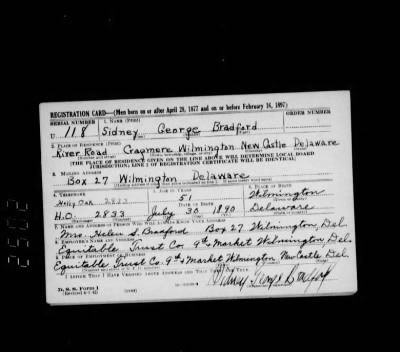 REGISTRATION CARD—(Men born on or after April 28, 1877 and on or before February 16, 1897)
SERIAL NUMBER 1. NAME (Print)
U 118 Sidney George Bradford
2. PLACE OF RESIDENCE (Print)
River Road Cragmere Wilmington New Castle Delaware
[THE PLACE OF RESIDENCE GIVEN ON THE LINE ABOVE WILL DETERMINE LOCAL BOARD
JURISDICTION; LINE 2 OF REGISTRATION CERTIFICATE WILL BE IDENTICAL]
3. MAILING ADDRESS
Box 27 Wilmington Delaware
4. TELEPHONE 5. AGE IN YEARS 6. PLACE OF BIRTH
Holly Oak 2833 51 Wilmington
H.O. 2833 July 30 1890 Delaware
7. NAME AND ADDRESS OF PERSON WHO WILL ALWAYS KNOW YOUR ADDRESS
Mrs. Helen S. Bradford Box 27 Wilmington, Del.
8. EMPLOYER'S NAME AND ADDRESS
Equitable Trust Co. 9th Market Wilmington, Del.
9. PLACE OF EMPLOYMENT OR BUSINESS
Equitable Trust Co. 9th & Market Wilmington New Castle Del.
I AFFIRM THAT I HAVE VERIFIED ABOVE ANSWERS AND THAT THEY ARE TRUE.
D. S. S. Form 1
(Revised 4-1-42)
Sidney George Bradford